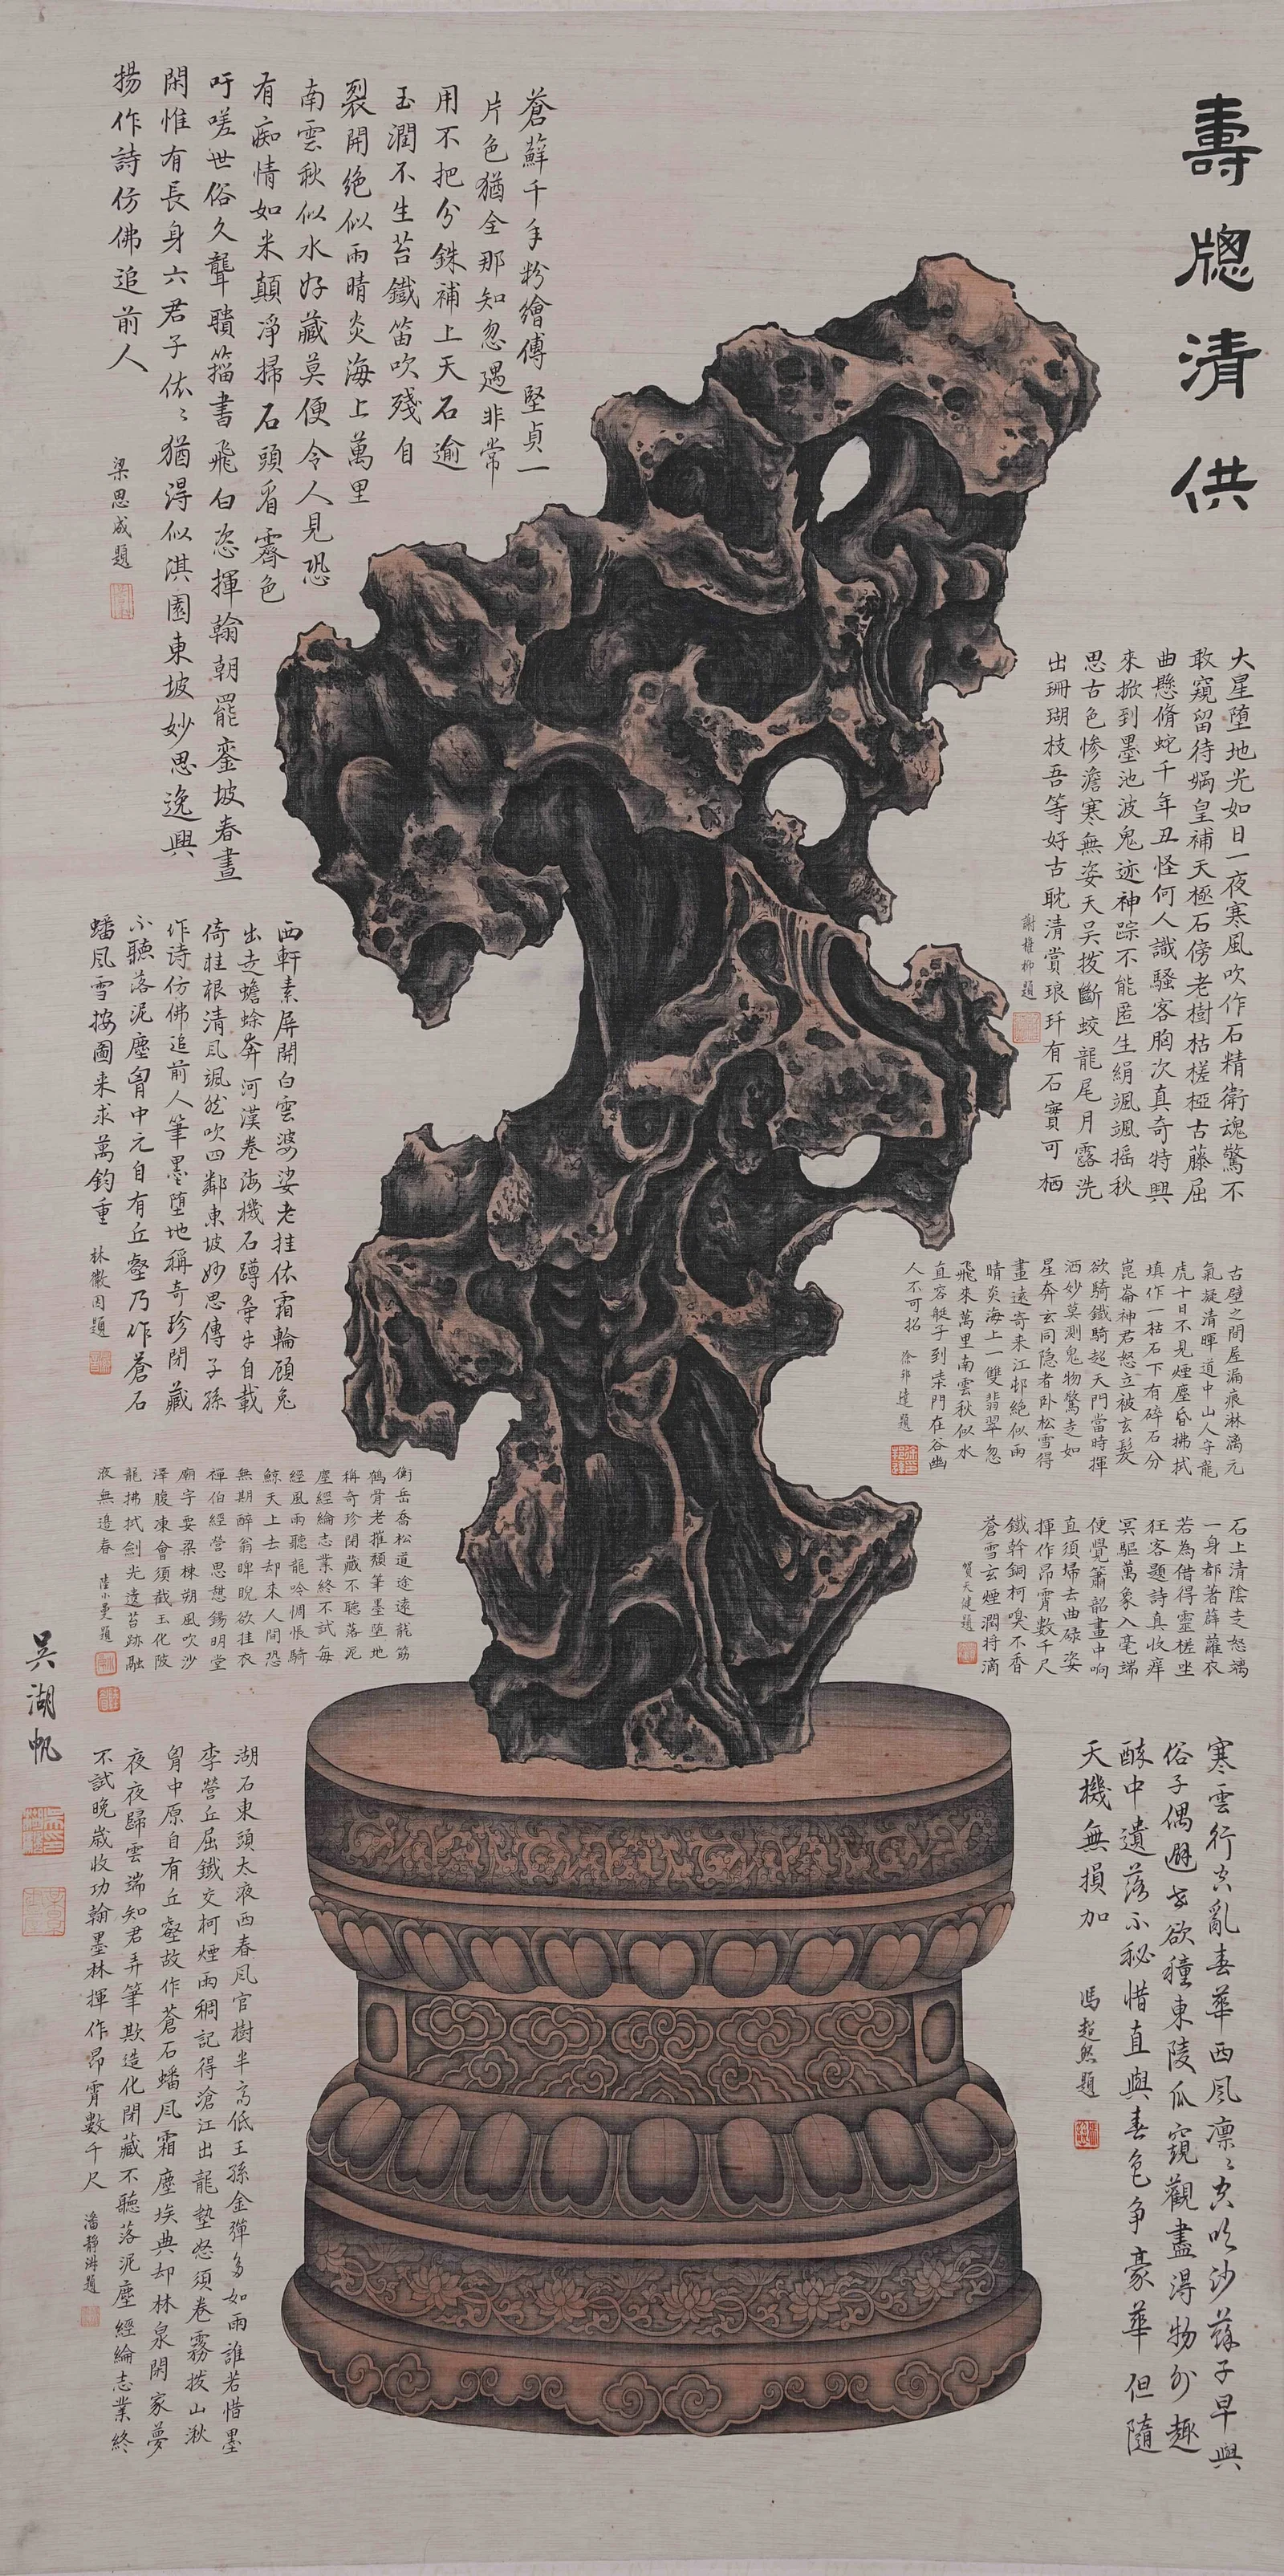 壽牕清供
大星墮地光如日一夜寒風吹作石精衛魂驚不
敢窺留待媧皇補天極石傍老樹枯槎椏古藤屈
曲懸脩蛇千年丑怪何人識騷客胸次真奇特興
來掀到墨池波鬼迹神踪不能匿生絹颯颯摇秋
思古色慘澹寒無姿天吴拔斷蛟龍尾月露洗
出珊瑚枝吾等好古耽清賞琅玕有石實可栖
謝稚柳題
古壁之間屋漏痕淋漓元
氣凝清暉道中山人守龍
虎十日不見煙塵昏拂拭
填作一枯石下有碎石分
崑崙神君怒立被玄髮
欲騎鐵騎超天門當時揮
洒妙莫測鬼物驚走如
星奔玄同隐者卧松雪得
畫遠寄来江邨絶似雨
晴炎海上一雙翡翠忽
飛來萬里南雲秋似水
且容艇子到柴門在谷幽
人不可招
徐邦達題
石上清陰走怒螭
一身都著薜蘿衣
若為借得靈槎坐
狂客題詩真收痒
冥驅萬象入毫端
便覺簫韶畫中响
直須掃去曲碌姿
揮作昂霄數千尺
鐵幹銅柯嗅不香
蒼雪玄煙潤将滴
賀天健題
寒雲行空亂春華西風凛凛空吹沙蘇子早與
俗子偶避世欲種東陵瓜窺觀盡得物外趣
酥中遺落不秘惜直與春色争豪華但隨
天機無損加
馮超然題
蒼蘚千年粉繪傳堅貞一
片色猶全那知忽遇非常
用不把分銖補上天石逾
玉潤不生苔鐵笛吹殘自
裂開絶似雨晴炎海上萬里
南雲秋似水好藏莫便令人見恐
有痴情如米顛净掃石頭看霽色
吁嗟世俗久聾聵籀書飛白恣揮翰朝罷鑾坡春晝
閑惟有長身六君子依依猶得似淇園東坡妙思逸興
揚作詩仿佛追前人
梁思成題
西軒素屏開白雲婆娑老桂依霜輪顧兔
出走蟾蜍奔河漢卷海機石蹲牽牛自載
倚桂根清風颯然吹四鄰東坡妙思傳子孫
作詩仿佛追前人筆墨堕地稱奇珍閉藏
不聽落泥塵胷中元自有丘壑乃作蒼石
蟠風雪按圖来求萬鈞重
林徽因題
衡岳喬松道途遠龍筋
鶴骨老摧頹筆墨堕地
稱奇珍閉藏不聽落泥
塵經綸志業終不試每
經風雨聽龍吟惆悵騎
鯨天上去却来人間恐
無期醉翁睥睨欲挂衣
禪伯經營思憩錫明堂
廟宇要梁棟朔風吹沙
澤腹凍會須截玉化陂
龍拂拭劍光遠苔跡融
液無邊春
陸小曼題
湖石東頭太液西春風官樹半高低王孫金彈多如雨誰若惜墨
李營丘屈鐵交柯煙雨稠記得滄江出龍蟄怒須卷霧拔山湫
胷中原自有丘壑故作蒼石蟠風霜塵埃典却林泉閑家夢
夜夜歸雲端知君弄筆欺造化閉藏不聽落泥塵經綸志業終
不試晚歲收功翰墨林揮作昂霄數千尺
潘靜淑題
吴湖帆